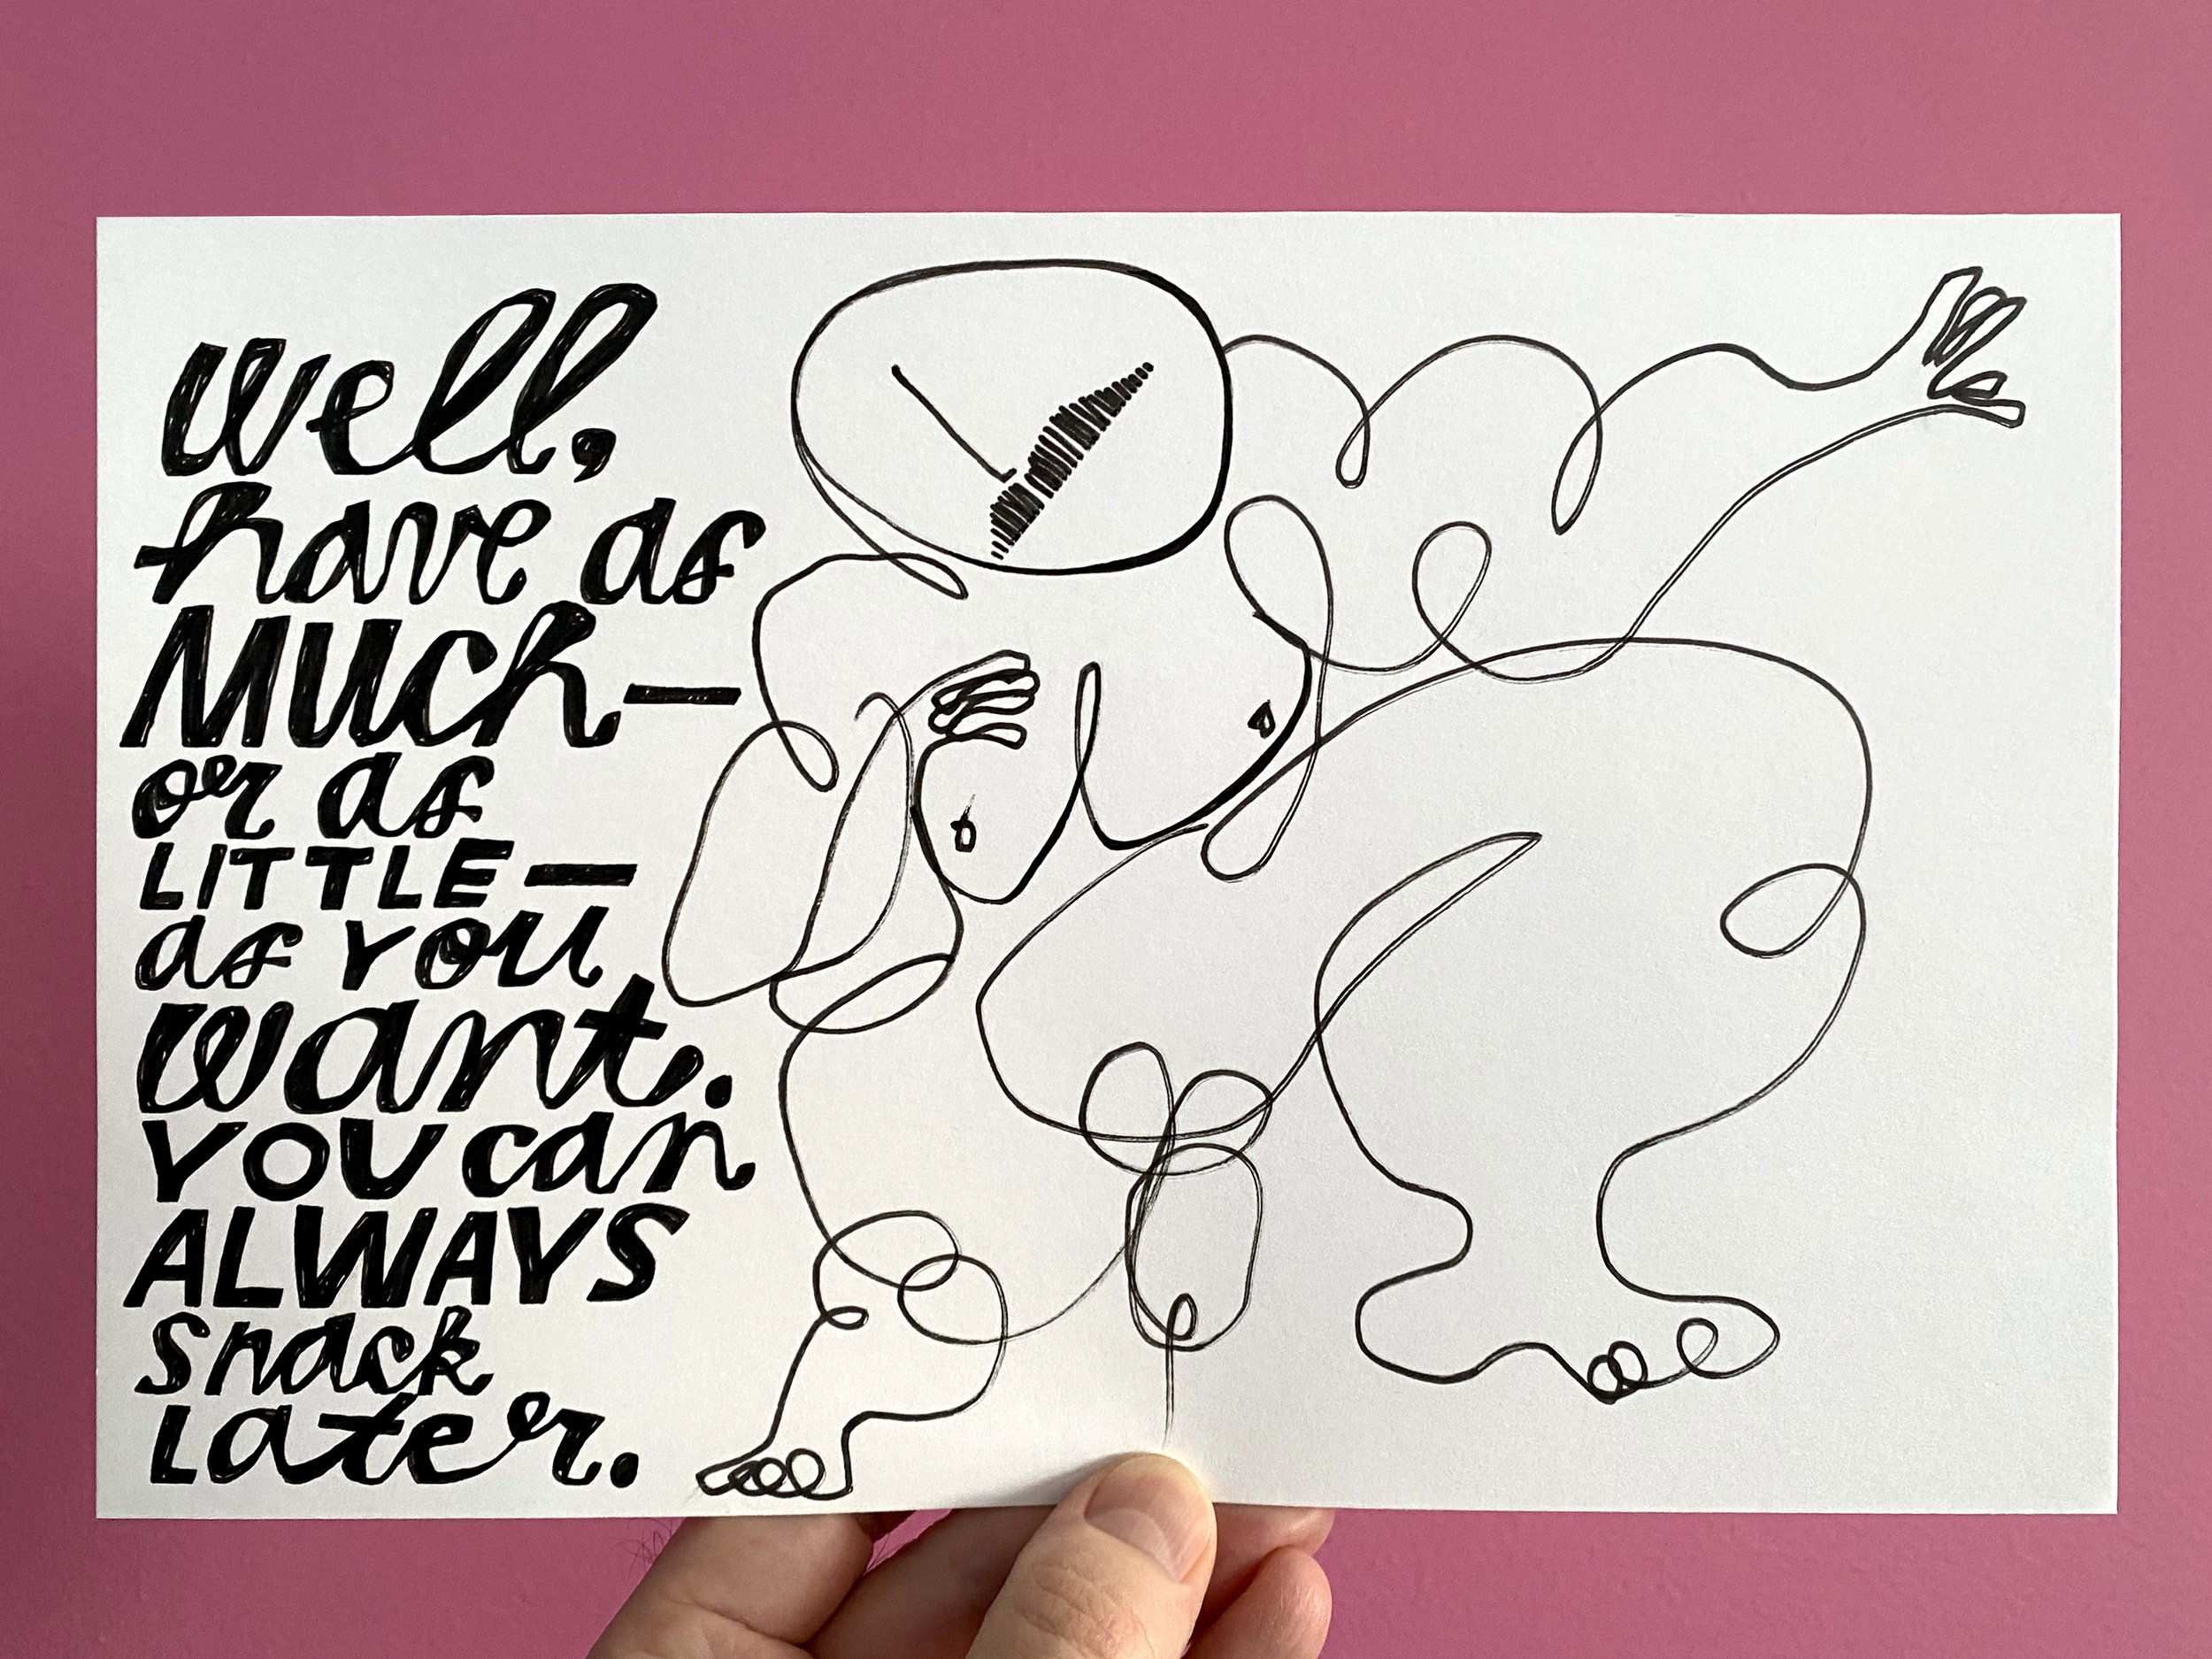 Well,
have as
Much—
or as
LITTLE—
as you
want.
YOU can
ALWAYS
snack
Later.